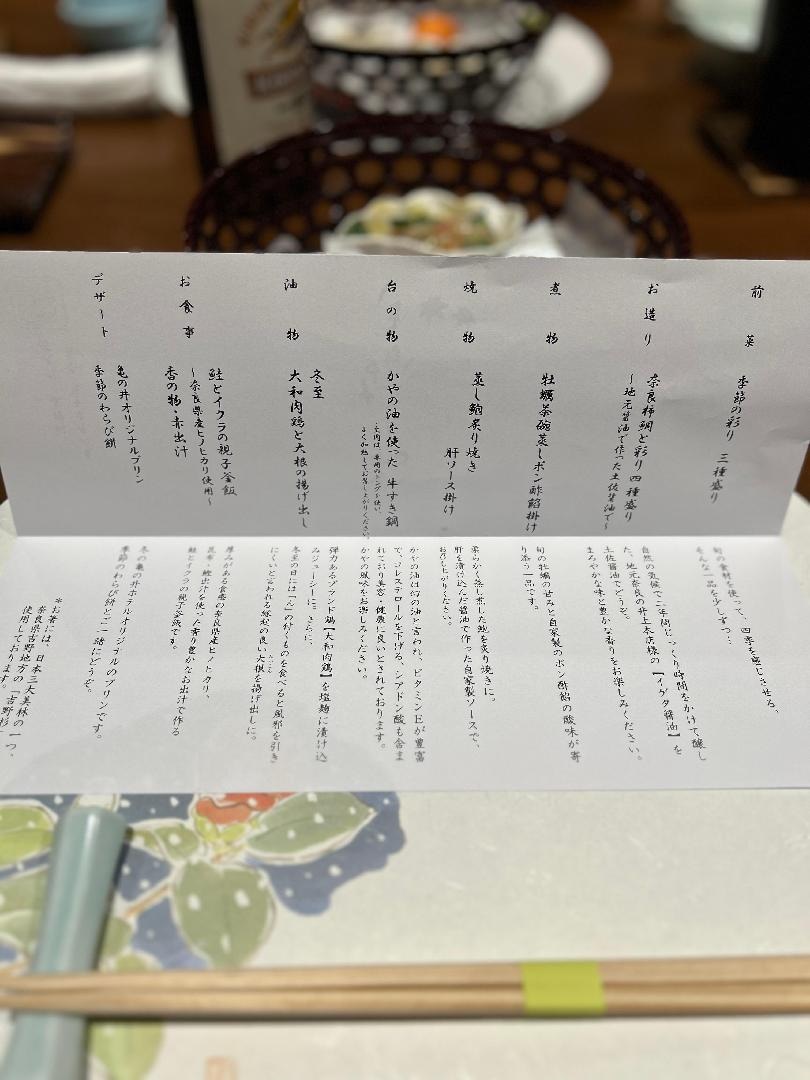 前菜
季節の彩り 三種盛り
お造り
奈良柿鯛と彩り四種盛り
～地元醤油で作った土佐醤油で～
煮物
牡蠣茶碗蒸しポン酢餡掛け
焼物
蒸し鮑炙り焼き
肝ソース掛け
台の物
かやの油を使った 牛すき鍋
よく加熱してお召し上がりください。
油物
冬至
大和肉鶏と大根の揚げ出し
お食事
鮭とイクラの親子釜飯
～奈良県産ヒノヒカリ使用～
香の物・赤出汁
デザート
亀の井オリジナルプリン
季節のわらび餅
旬の食材を使って、四季を感じさせる、
そんな一品を少しずつ…
自然の気候で二年間じっくり時間をかけて醸し
た、地元奈良の井上本店様の【イゲタ醤油】を
土佐醤油でどうぞ。
まろやかな味と豊かな香りをお楽しみください。
旬の牡蠣の甘みと自家製のポン酢餡の酸味が寄
り添う一品です。
柔らかく蒸し煮した鮑を炙り焼きに。
肝を漬け込んだ醤油で作った自家製ソースで、
お召し上がりください。
かやの油は幻の油と言われ、ビタミンEが豊富
で、コレステロールを下げる、シアドン酸も含ま
れており美容・健康に良いとされております。
かやの風味をお楽しみください。
弾力あるブランド鶏【大和肉鶏】を塩麹に漬け込
みジューシーに。さらに、
冬至の日には「ん」の付くものを食べると風邪を引き
にくいと言われる縁起の良い大根を揚げ出しに。
厚みがある食感の奈良県産ヒノヒカリ、
昆布・鰹出汁を使った香り豊かなお出汁で作る
鮭とイクラの親子釜飯です。
冬の亀の井ホテルオリジナルのプリンです。
季節のわらび餅とご一緒にどうぞ。
*お箸には、日本三大美林の一つ、
奈良県吉野地方の「吉野杉」
使用しております。